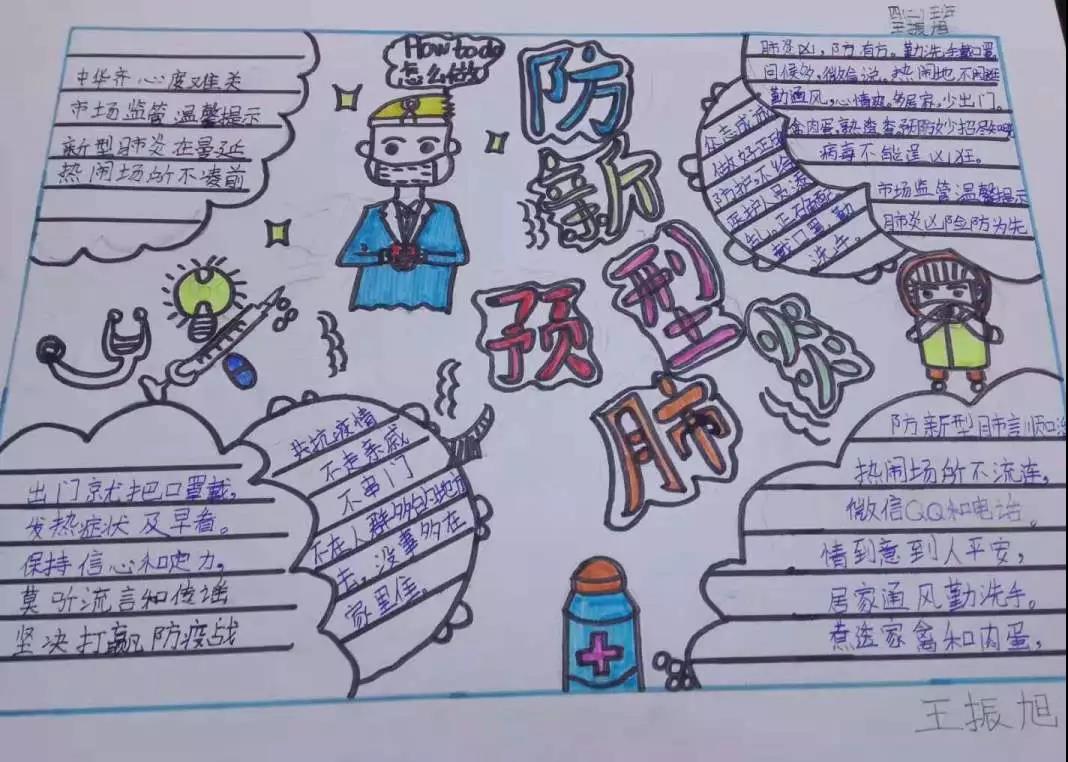 四(二)班
王振旭
中华齐心度难关
市场监管温馨提示
新型肺炎在曼延
热闹场所不凑前
How to do
怎么做
防
新
预 型 炎
肺
肺炎凶,防有方。勤洗手戴口罩
问候多,微信说,热闹地不闲逛
勤通风,心情爽,多居家,少出门。
禽肉蛋,熟
病毒不能逞凶狂。
市场监管温馨提示
肺炎凶险防为先
众志成城
做好正确
防护,不给
医护人员添
乱。正确佩
戴口罩,勤
洗手。
出门就把口罩戴,
发热症状及早看。
保持信心和定力,
莫听流言和传谣
坚决打赢防疫战
共抗疫情
不走亲戚
不串门
不在人群多的地方
去,没事多在
家里住。
防新型肺言顺和治
热闹场所不流连,
微信QQ和电话。
情到意到人平安,
居家通风勤洗手。
煮透家禽和肉蛋,
王振旭